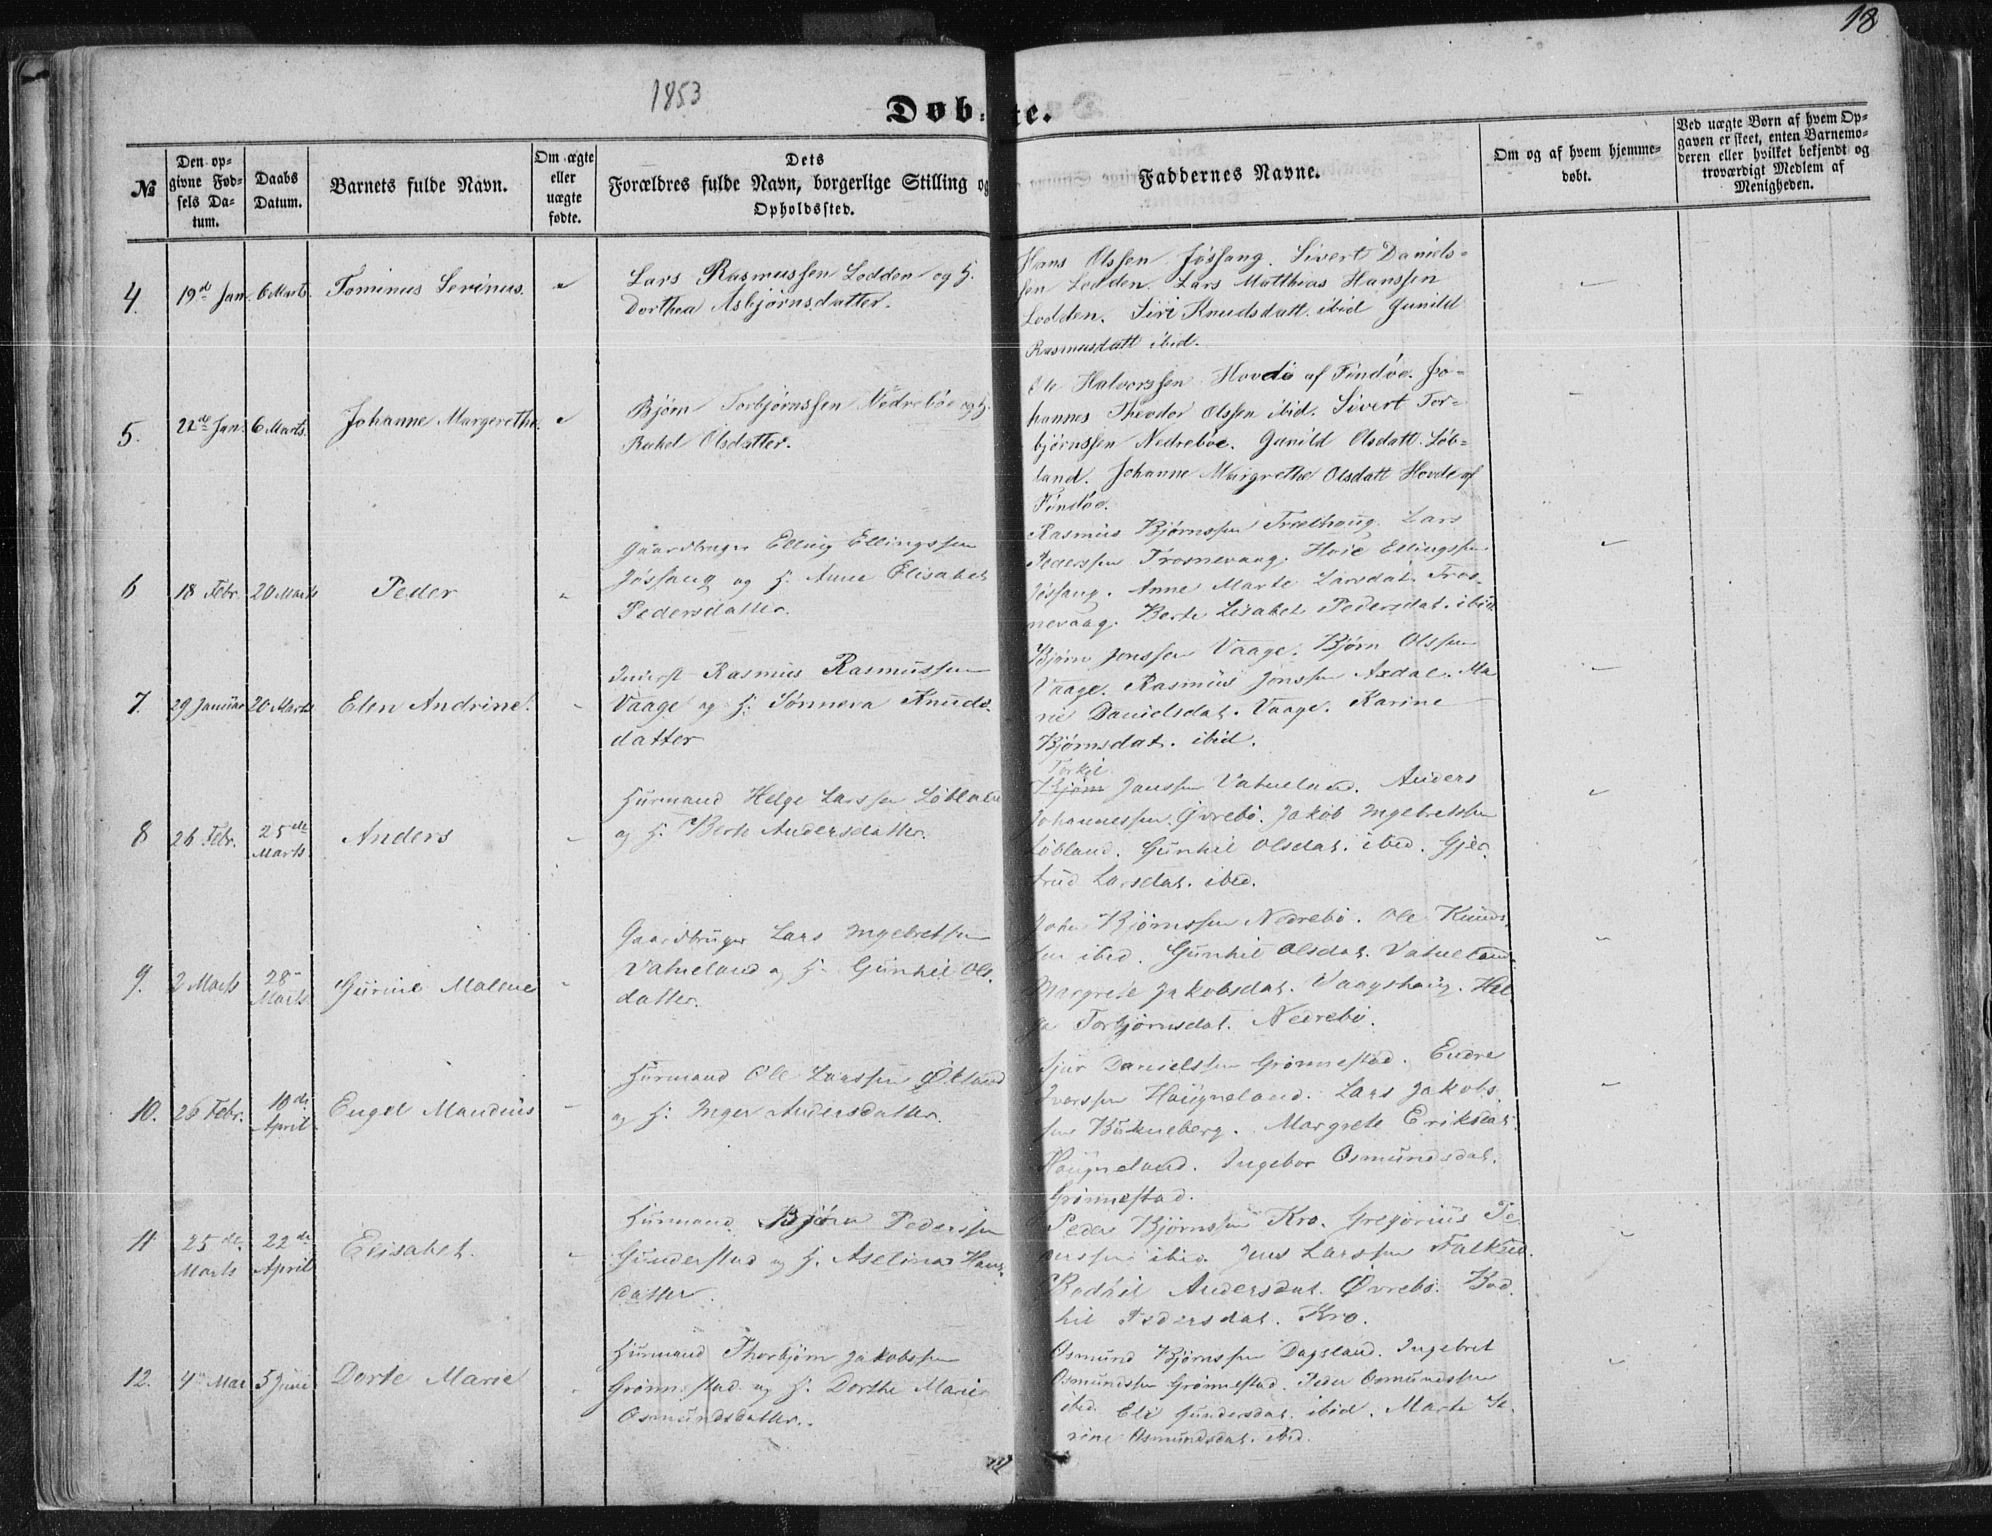 18
1853
Døbte.
№
Den opgivne Fødsels Datum.
Daabs Datum.
Barnets fulde Navn.
Om ægte eller uægte fødte.
Dets Forældres fulde Navn, borgerlige Stilling og Opholdssted.
Faddernes Navne.
Om og af hvem hjemmedøbt.
Ved uægte Børn af hvem Opgaven er skeet, enten Barnemoderen eller hvilket bekjendt og troværdigt Medlem af Menigheden.
4. 19de Jan. 6 Marts. Tominus Serinus.
Lars Rasmussen Lodden og H.
Dorthea Asbjørnsdatter.
Hans Olssen Jøssang. Sivert Daniels-
sen Lodden. Lars Matthias Hanssen
Lodden. Siri Knudsdatt. ibid Gunild
Rasmusdatt ibid.
5. 22de Jan. 6 Marts. Johanne Margrethe
Bjørn Torbjørnssen Nedrebøe og H.
Rakel Olsdatter.
Ole Halvorssen Hovde af Findøe. Jo-
hannes Theodor Olssen ibid. Sivert Tor-
bjørnssen Nedrebøe. Gunild Olsdatt. Løb-
land. Johanne Margrethe Olsdatt Hovde af
Findøe.
6 18 Febr. 20 Marts Peder
Gaardbruger Elling Ellingssen
Jøssang og H. Anne Elisabet
Pedersdatter.
Rasmus Bjørnssen Trælhoug. Lars
Pederssen Trosnevaag. Ellingssen
Jøssang. Anne Marte Larsdat. Tros-
nevaag. Berte Lisabet Pedersdat. ibid
7. 29 Januar 20 Marts Elen Andrine.
Inderst Rasmus Rasmussen
Vaage og H. Sønneva Knuds-
datter
Bjørn Jonssen Vaage. Bjørn Olssen
Vaage. Rasmus Jonssen Axdal. Ma
rie Danielsdat. Vaage. Karine
Bjørnsdat. ibid.
8 26 Febr. 25de Marts Anders
Huusmand Helge Larssen Løbland
og H. Berte Andersdatter.
Torkil
Bjørn Janssen Vatneland. Anders
Johannessen Øvrebø. Jakob Ingebretssen
Løbland. Gunhil Olsdat. ibid. Gjer
trud Larsdat. ibid.
9. 2 Marts 28 Marts Gurine Malene
Gaardbruger Lars Ingebretsen
Vatneland og H. Gunhil Ols-
datter.
Bjørnssen Nedrebø. Ole Knuds
sen ibid. Gunhil Olsdat. Vatneland.
Margrete Jakobsdat. Vaagshaug. Hel
ga Torbjørnsdat. Nedrebø.
10. 26 Febr. 10de April Engel Mandius
Huusmand Ole Larssen Økland
og H. Inger Andersdatter.
Sjur Danielssen Grønnestad. Endre
Iverssen Haugneland. Lars Jakobs
sen Bokneberg. Margrete Eriksdat.
Haugneland. Ingebor Osmundsdat.
Grønnestad.
11 25de Marts 22de April Elisabet.
Huusmand Bjørn Pederssen
Gunderstad og H. Aselina Hans-
datter.
Peder Bjørnssen Kro. Gregorius Pe
derssen ibid. Jens Larssen Falkeid.
Bodhil Andersdat. Øvrebø. Bod
hil Pedersdat. Kro.
12. 4 Mai 5 Juni Dorte Marie
Huusmand Thorbjørn Jakobssen
Grønnestad og H. Dorthe Marie
Osmundsdatter.
Osmund Bjørnssen Dagsland. Ingebret
Osmundssen Grønnestad. Peder Osmundssen
ibid. Eli Gundersdat. ibid. Marte Se-
rine Osmundsdat. ibid.